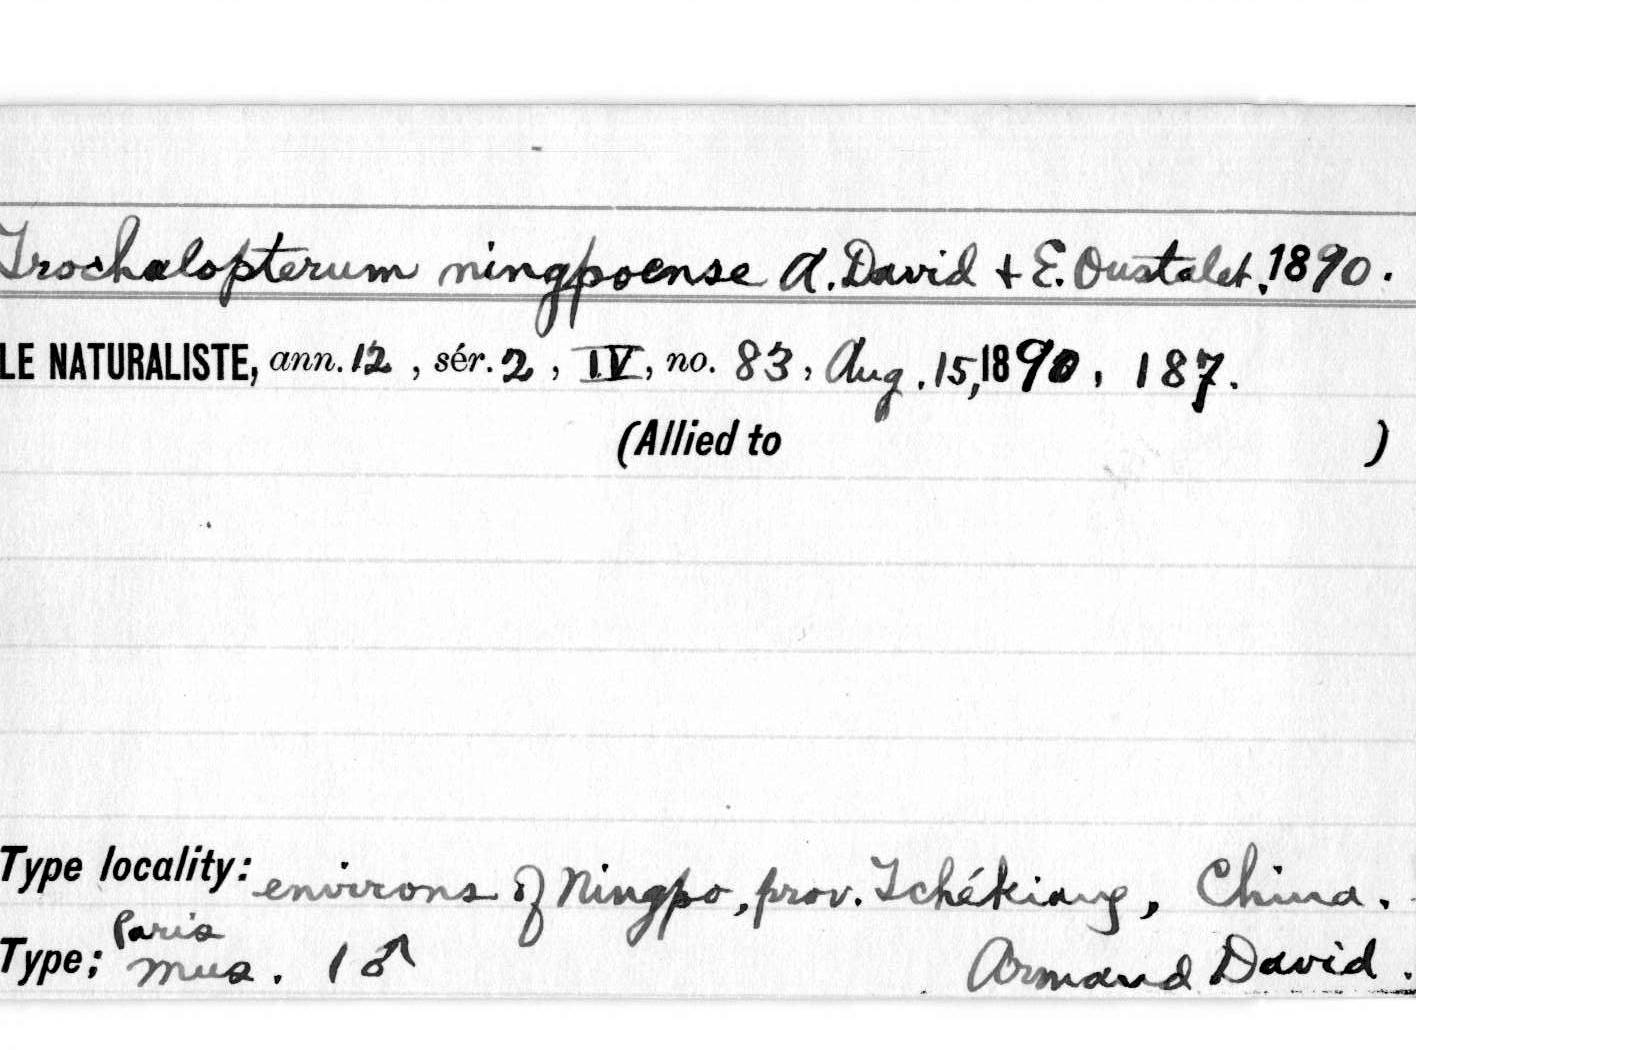 Trochalopterum ningpoense A. David + E. Oustalet, 1890.
LE NATURALISTE, ann. 12, sér. 2, IV, no. 83, Aug. 15, 1890, 187.
(Allied to )
Type locality: environs of Ningpo, prov. Tchékiang, China.
Type; Paris Mus. 1 ♂ Armand David.